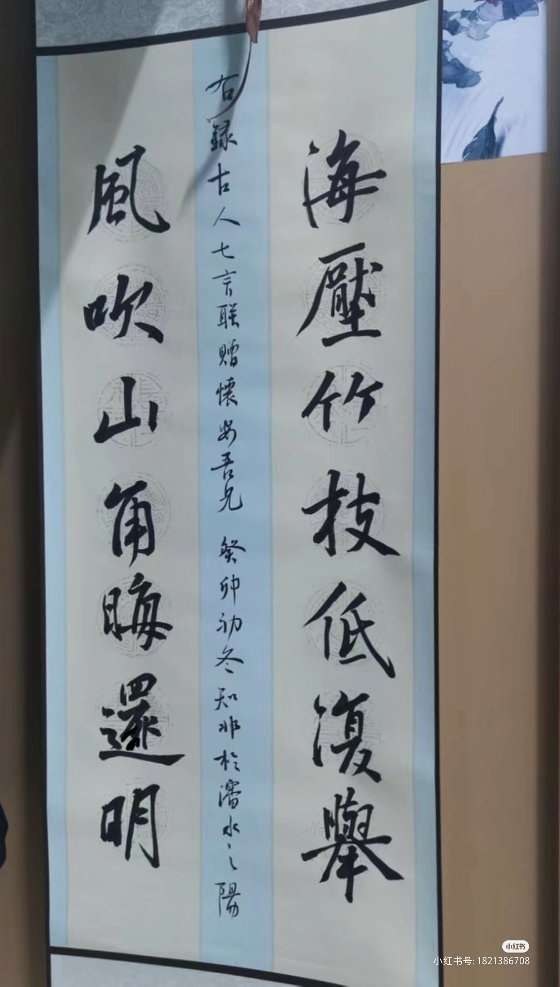 海壓竹枝低復舉
右錄古人七言联贈懷安吾兄 癸卯初冬知非於濡水之陽
風吹山角晦還明
小红书
小红书号: 1821386708